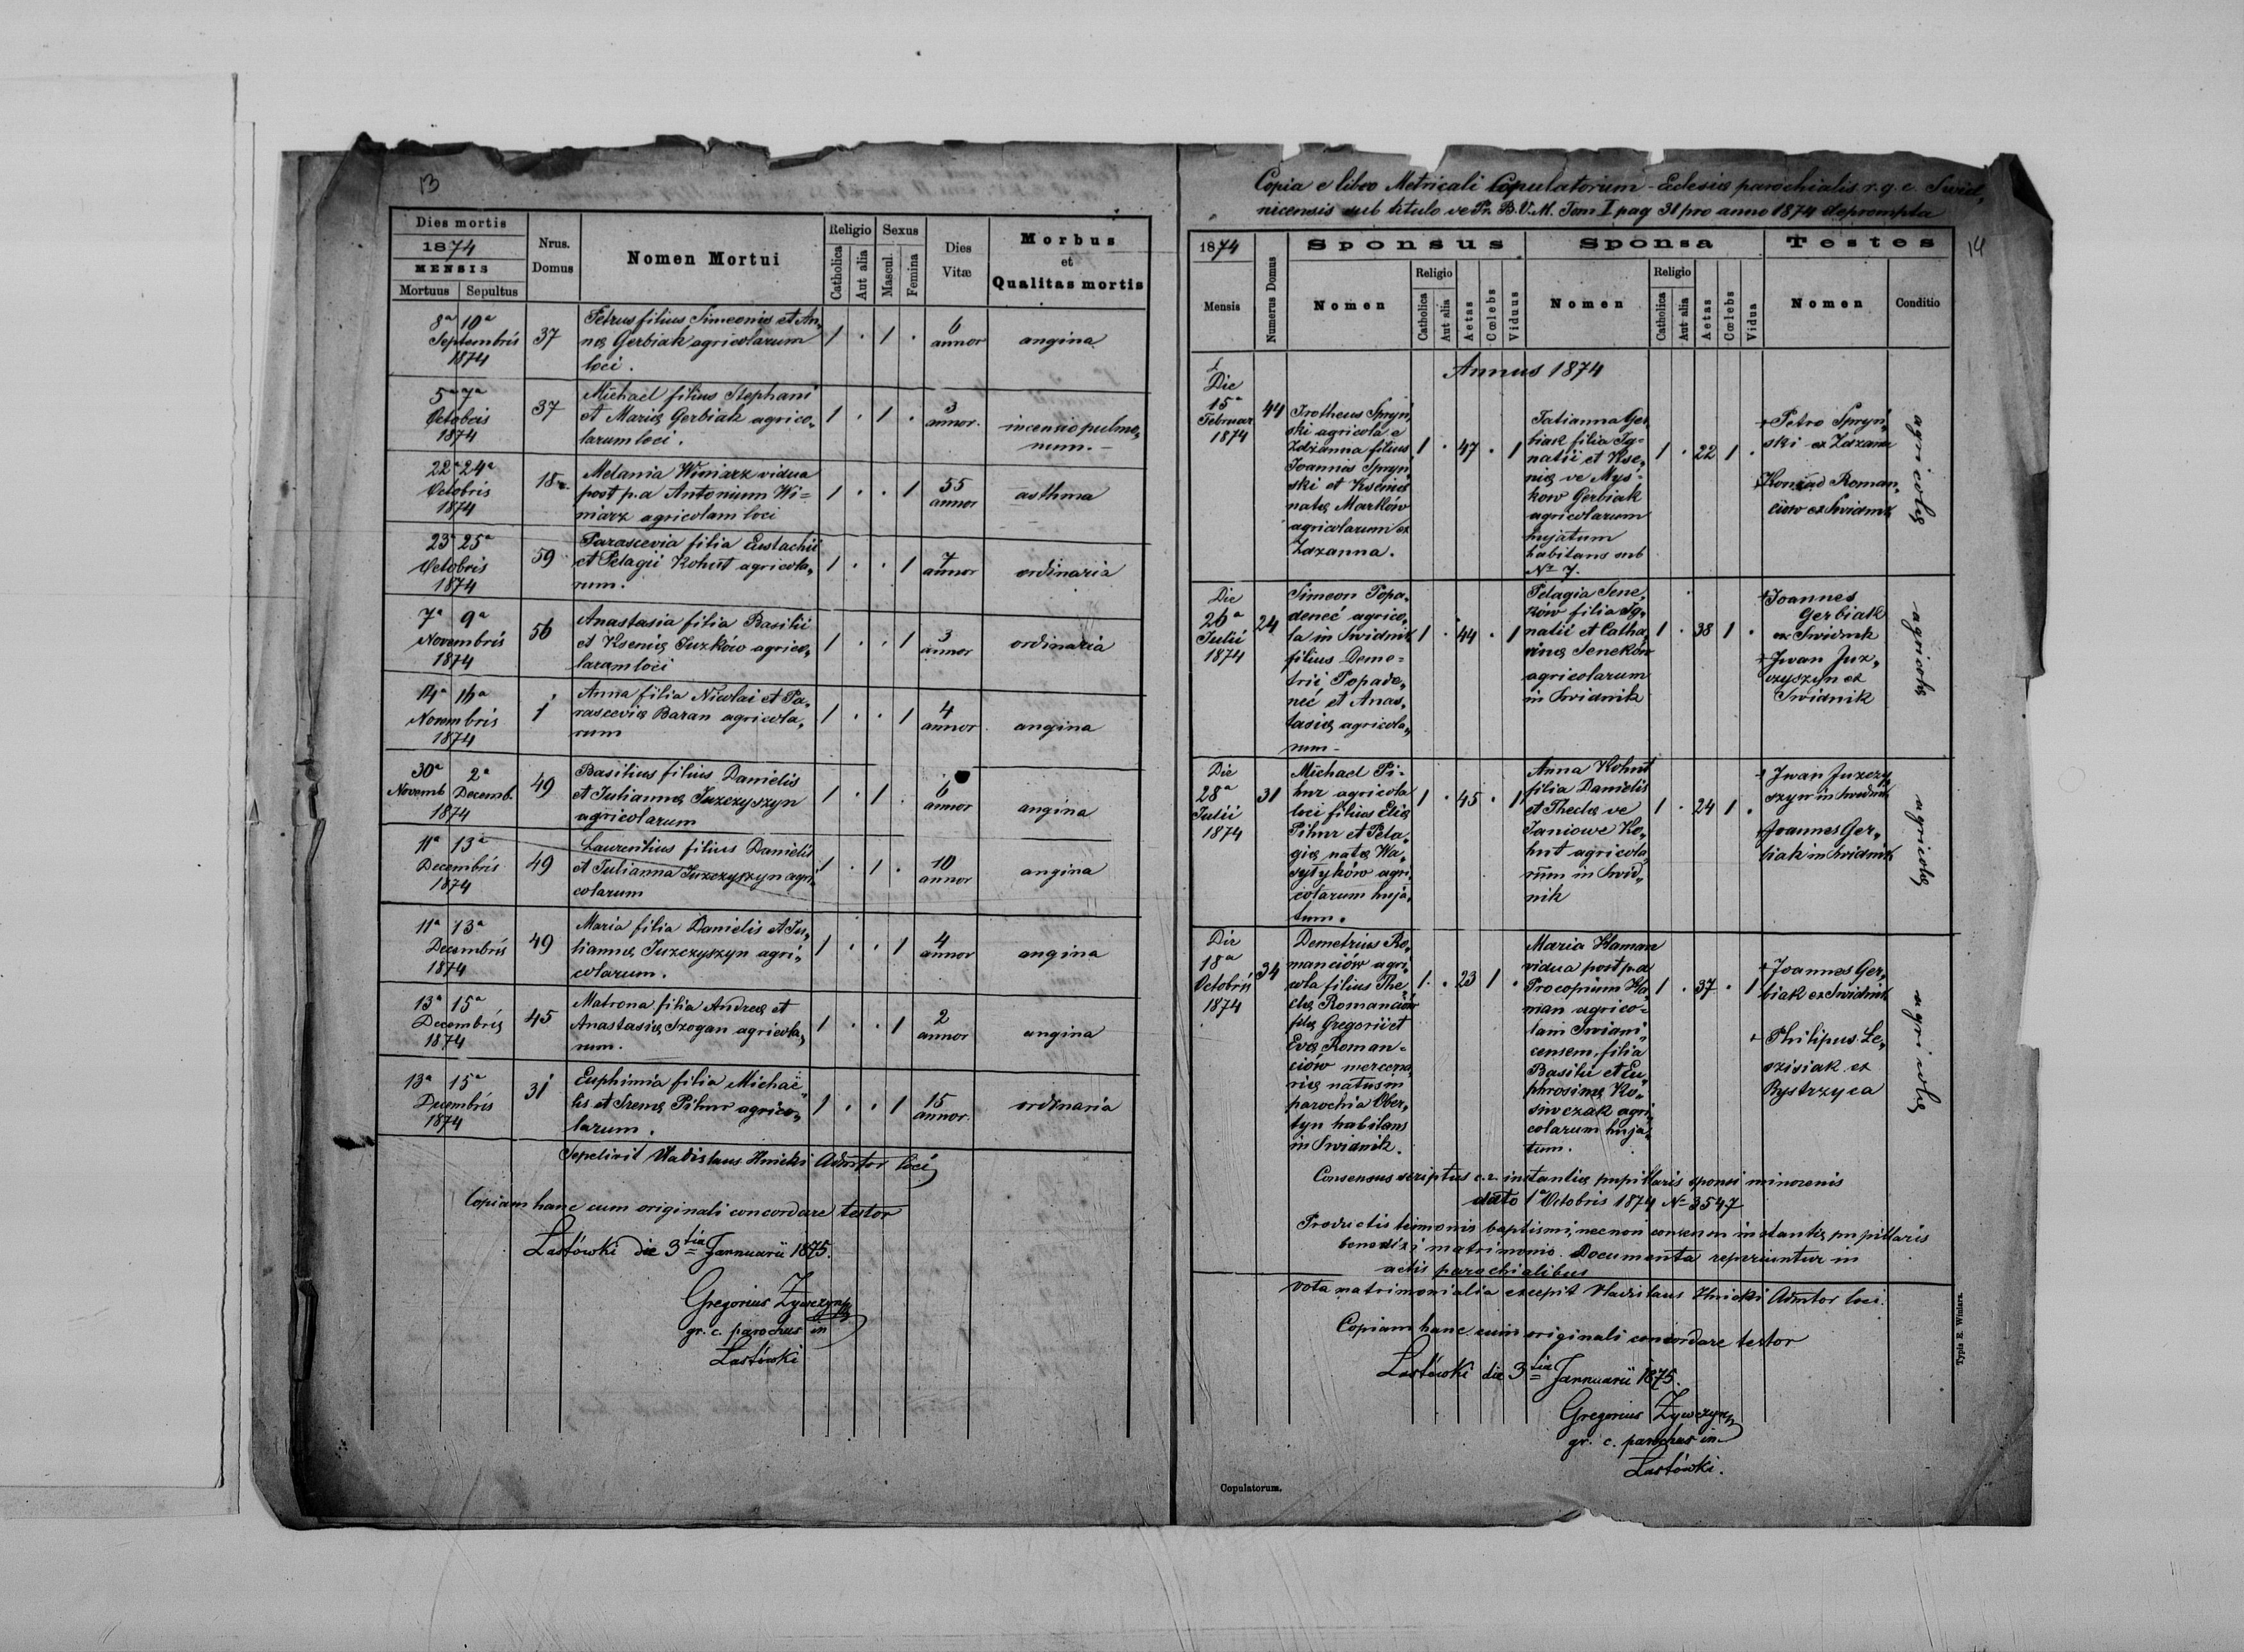 13
Dies mortis
1874
MENSIS
Mortuus Sepultus
Nrus. Domus
Nomen Mortui
Religio
Catholica
Aut alia
Sexus
Mascul.
Femina
Dies Vitæ
Morbus
et
Qualitas mortis
8ª 10ª
Septembris
1874
37
Petrus filius Simeonis et An„
næ Gerbiak agricolarum
loci.
1 . 1 .
6
annor
angina
5ª 7ª
Octobris
1874
37
Michael filius Stephani
et Mariæ Gerbiak agrico„
larum loci.
1 . 1 .
3
annor.
incensio pulmo„
num.
22ª 24ª
Octobris
1874
18
Melania Winiarz vidua
post p.d Antonium Wi=
niarz agricolam loci
1 . . 1
55
annor
asthma
23ª 25ª
Octobris
1874
59
Parascevia filia Eustachii
et Pelagii Kohut agricola„
rum.
1 . . 1
7
annor
ordinaria
7ª 9ª
Novembris
1874
56
Anastasia filia Basilii
et Kseniæ Juzków agrico„
larum loci
1 . . 1
3
annor
ordinaria
14ª 16ª
Novembris
1874
1
Anna filia Nicolai et Pa„
rasceviæ Baran agricola„
rum
1 . . 1
4
annor
angina
30ª 2ª
Novemb Decemb.
1874
49
Basilius filius Danielis
et Juliannæ Juzczyszyn
agricolarum
1 . 1 .
6
annor
angina
11ª 13ª
Decembris
1874
49
Laurentius filius Danielis
et Julianna Juzczyszyn agri„
colarum
1 . 1 .
10
annor
angina
11ª 13ª
Decembris
1874
49
Maria filia Danielis et Ju„
liannæ Juzczyszyn agri„
colarum.
1 . . 1
4
annor
angina
13ª 15ª
Decembris
1874
45
Matrona filia Andreæ et
Anastasiæ Szogan agricola„
rum.
1 . . 1
2
annor
angina
13ª 15ª
Decembris
1874
31
Euphimia filia Michaë„
lis et Irenæ Pihur agrico„
larum.
1 . . 1
15
annor.
ordinaria
Sepelivit Vladislaus Ilnicki Admtor loci
Copiam hanc cum originali concordare testor
Lastówki die 3tia Jannuarii 1875.
Gregorius
gr. c. parochus in
Lastówki
Copia e libro Metricali Copulatorum Eclesiæ parochialis r.g.c. Swid„
nicensis sub titulo ve Pr. B.V.M. Tom I pag 31 pro anno 1874 deprompta
14
1874
Mensis
Numerus Domus
Sponsus
Nomen
Religio
Catholica
Aut alia
Aetas
Cœlebs
Viduus
Sponsa
Nomen
Religio
Catholica
Aut alia
Aetas
Cœlebs
Vidua
Testes
Nomen
Conditio
Annus 1874
Die
15ª
Februar
1874
44
Irotheus Spryń„
ski agricola e
Zdzanna filius
Joannes Spryń„
ski et Kseniæ
natæ Marków
agricolarum ex
Zdzanna.
1 . 47 . 1
Tatianna Ger„
biak filia Ig=
natii et Kse„
niæ ve Myś=
kow Gerbiak
agricolarum
hujatum
habitans sub
No 7.
1 . 22 1 .
+ Petro Spryń„
ski ex Zdzana
+ Konrad Roman„
ciów ex Swidnik
agricolæ
Die
26ª
Julii
1874
24
Simeon Popa„
deneć agrico„
la in Swidnik
filius Deme=
trii Popade„
neć et Anas„
tasiæ agricola„
rum
1 . 44 . 1
Pelagia Sene„
ków filia Ig„
natii et Catha„
rinæ Seneków
agricolarum
in Swidnik
1 . 38 1 .
+ Joannes
Gerbiak
ex Swidnik
+ Jwan Juz„
czyszyn ex
Swidnik
agricolæ
Die
28ª
Julii
1874
31
Michael Pi=
hur agricola
loci filius Eliæ
Pihur et Pela„
giæ natæ Wa„
sylyków agri„
colarum huja„
tum.
1 . 45 . 1
Anna Kohut
filia Danielis
et Theclæ ve
Janiowe Ko„
hut agricola„
rum in Swid„
nik
1 . 24 1 .
+ Jwan Juzczy„
szyn in Swidnik
+ Joannes Ger„
biak in Swidnik
agricolæ
Die
18ª
Octobris
1874
34
Demetrius Ro„
manciów agri„
cola filius The„
clæ Romanciów
filæ Gregorii et
Evæ Roman=
ciów mercena„
riæ natus in
parochia Ober„
tyn habitans
in Swidnik.
1 . 23 1 .
Maria Haman
vidua post p.d
Procopium Ha„
man agrico=
lam Swidni„
censem, filia
Basilii et Eu„
phrosinæ Ko„
siwczak agri„
colarum huja„
tum.
1 . 37 . 1
+ Joannes Ger„
biak ex Swidnik
+ Philipus Le„
szisiak ex
Bystrzyca
agricolæ
Consensus scriptus c.r. instantiæ pupillaris sponsi minorenis
dato 1ª Octobris 1874 No 3547
Productis timonis baptismi, necnon consensu instantiæ pupillaris
benedixi matrimonio. Documenta reperiuntur in
actis parochialibus
Vota matrimonialia excepit Vladislaus Ilnicki Admtor loci.
Copiam hanc cum originali concordare testor
Lastówki die 3tia Jannuarii 1875.
Gregorius
gr. c. parochus in
Lastówki.
Copulatorum.
Typis E. Winiarz.